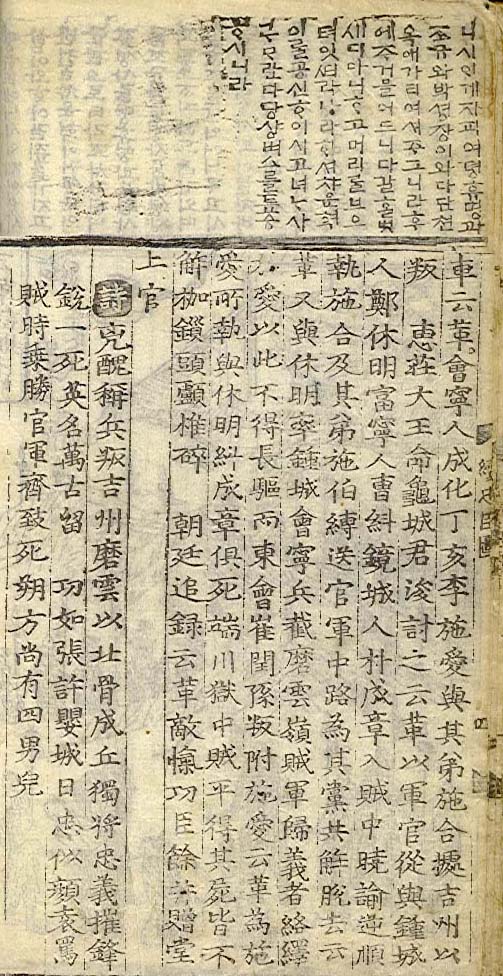 니시ᄋᆡ게자피여뎡휴명과
조규와박셩쟝이와다단쳔
옥애가티여셔주그니라후
에주검을어드니다갈
세디아니ᄒᆞ고머리ᄅᆞᆯ
텨잇더라나라
공신ᄒᆞ이시고녀느사
ᄅᆞᄆᆞ란다당샹벼스ᄅᆞᆯ
ᄒᆞ시니라
車云革會寧人成化丁亥李施愛與其弟施合據吉州以
叛 惠莊大王命龜城君浚討之云革以軍官從與鍾城
人鄭休明富寧人曹糾鏡城人朴成章入賊中曉諭逆順
執施合及其弟施伯縛送官軍中路為其黨共解脫去云
革又與休明率鍾城會寧兵截磨雲嶺賊軍歸義者絡繹
施愛以此不得長驅而東會崔閏孫叛附施愛云革為施
愛所執與休明糾成章俱死端川獄中賊平得其屍皆不
解枷鎖頭顱椎碎 朝廷追錄云革敵愾功臣餘並贈堂
上官
詩 兇醜稱兵叛吉州磨雲以北骨成丘獨將忠義摧鋒
銳一死英名萬古留 功如張許嬰城日忠似顏袁罵
賊時乘勝官軍齊致死朔方尚有四男兒